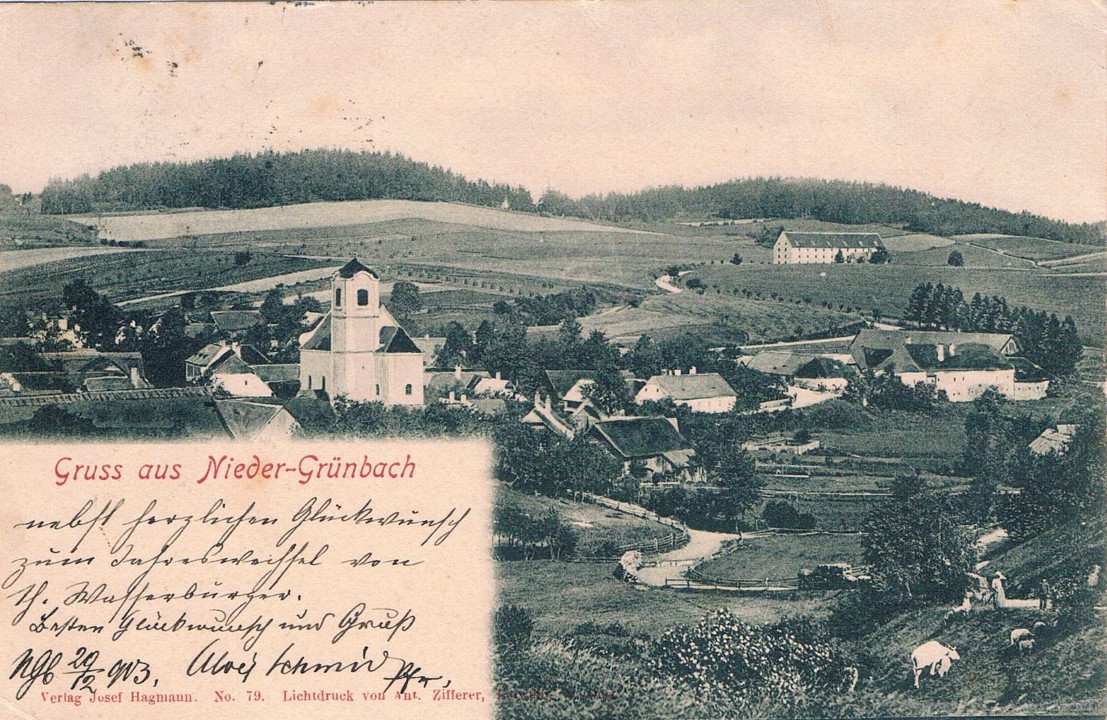 Gruss aus Nieder-Grünbach
nebst herzlichen Glückwunsch
zum Jahreswechsel von
Th. Wasserburger.
Besten Glückwunsch und Gruß
29/12 903. Alois Schmid Pfr.,
Verlag Josef Hagmann. No. 79. Lichtdruck von Ant. Zifferer,